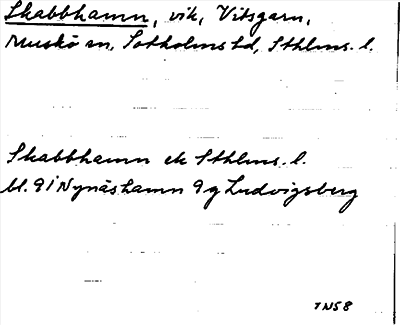 Skabbhamn, vik, Vitsgarn,
Muskö sn, Sotholms hd, Sthlms. l.
Skabbhamn ek Sthlms. l.
bl. 9 I Nynäshamn 9 g Ludvigsberg
TN58